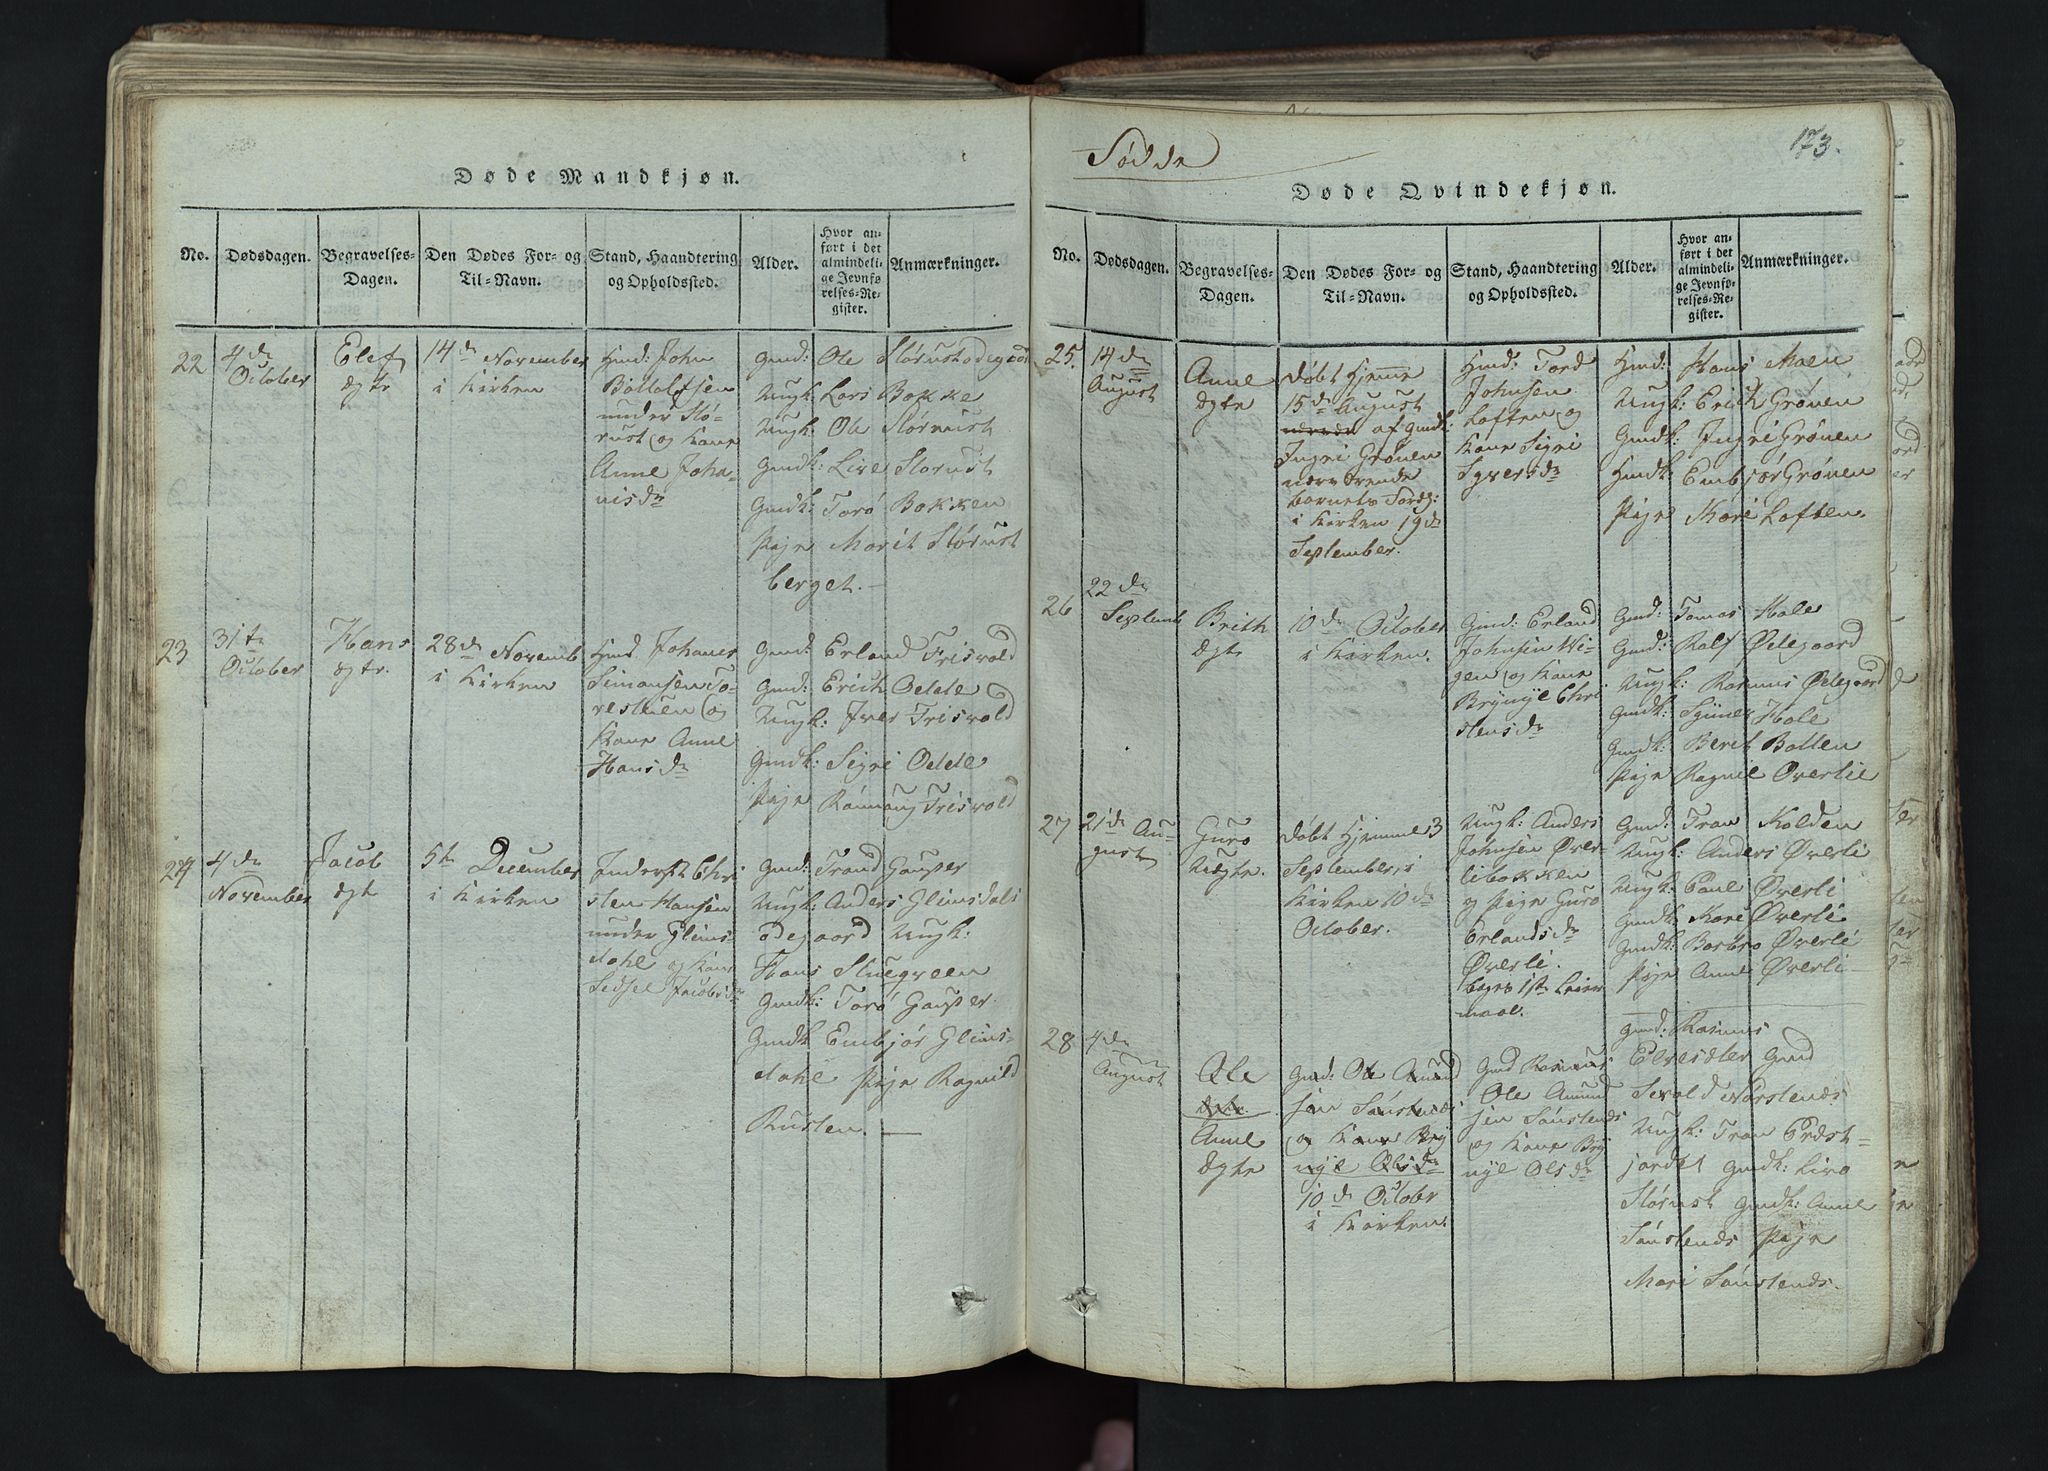 Døde Mandkjøn.
No.
Dødsdagen.
Begravelses-
Dagen.
Den Dødes For- og
Til-Navn.
Stand, Haandtering
og Opholdssted.
Alder.
Hvor an-
ført i det
almindeli-
ge Jevnfø-
relses-Re-
gister.
Anmærkninger.
22
4de
October
Elef
ægte
14de November
i Kirken
Hmd: John
Bottolfsen
under Stø-
rust og Kone
Anne Joha-
nisdr
Gmd: Ole Størustødegaard
Ungk: Lars Bakke
Ungk: Ole Størust
Gmdk: Live Størust
Gmdk: Torø Bakken
Pige Marit Størust
berget.
23
31te
October
Hans
ægte.
28de Novemb
i Kirken
Hmd Johanes
Simonsen To-
restuen og
Kone Anne
Hansdr
Gmd: Erland Frisvold
Gmd: Erich Odde
Ungk: Iver Frisvold
Gmdk: Sigri Odde
Pige Rønnaug Frisvold
24
4de
November
Jacob
ægte
5te December
i Kirken
Inderst Chri
sten Hansen
under Glims-
dahl og Kone
Sedsel Jacobsdr
Gmd: Trond Gaufser
Ungk: Anders Glimsdals
ødegaard Ungk:
Hans Stuegveen
Gmdk: Torø Gaufser
Gmdk Embjør Glims-
dahl Pige Ragnild
Rusten.
Fødde
173.
Døde Qvindekjøn.
No.
Dødsdagen.
Begravelses-
Dagen.
Den Dødes For- og
Til-Navn.
Stand, Haandtering
og Opholdssted.
Alder.
Hvor an-
ført i det
almindeli-
ge Jevnfø-
relses-Re-
gister.
Anmærkninger.
25.
14de
August
Anne
ægte
døbt hjemme
15de August
af Gmdk:
Ingri Grønen
nærværende
barnets Foræl:
i Kirken 19de
September.
Hmd: Tord
Johnsen
Loften og
Kone Sigri
Syversdr
Hmd: Hans Moen
Ungk: Erich Grønen
Gmdk: Ingri Grønen
Hmdk: Embjør Grønen
Pige Kari Loften.
26
22de
Septemb
Brith
ægte
10de October
i Kirken.
Gmd: Erland
Johnsen Wi-
gen og Kone
Brynyl Chri
stensdr
Gmd: Tomas Hole
Gmd: Rolf Ødegaard
Ungk: Rasmus Ødegaard
Gmdk: Synev Hole
Gmdk: Berit Botten
Pige Ragnil Øverlie
27
21de Au-
gust
Guro
Uægte.
døbt hjemme 3
September, i
Kirken 10de
October.
Ungk: Anders
Johnsen Øver-
libakken
og Pige Guro
Erlandsdr
Øverli.
begges 1ste Leier
maal.
Gmd: Tron Kolden
Ungk: Anders Øverli
Ungk: Paul Øverli
Gmdk: Kari Øverli
Gmdk: Barbro Øverli
Pige Anne Øverli
28
4de
August
Ole
Anne
ægte
Gmd: Ole Amund
sen Sønstends
og Kone Bry
nyl Olsdr
10de October
i Kirken.
Gmd Rasmus
Ole Amund
sen Sønstends
og Kone Bry
nyl Olsdr
Gmd: Rasmus
Elvesæter Gmd
Sevold Nørstends
Ungk: Tron Erdst-
jordet Gmdk: Live
Størust Gmdk: Anne
Sønstends Pige
Mari Sønstends.